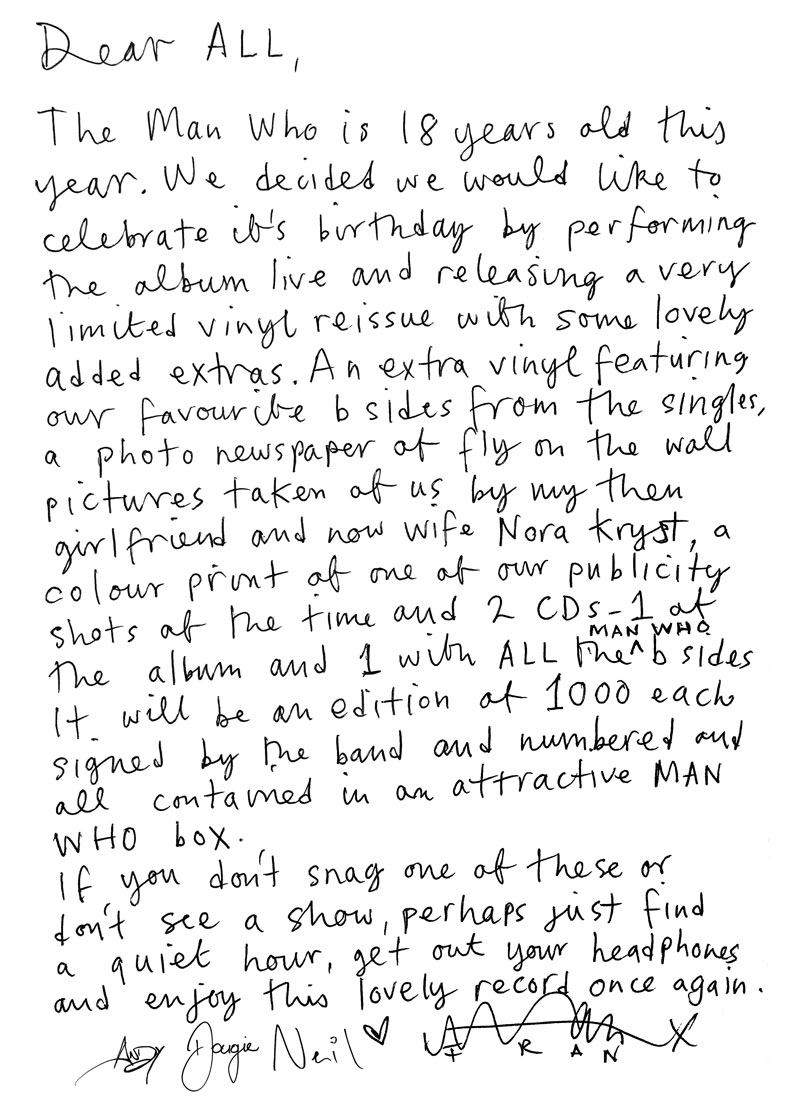 Dear ALL,
The Man Who is 18 years old this
year. We decided we would like to
celebrate it's birthday by performing
the album live and releasing a very
limited vinyl reissue with some lovely
added extras. An extra vinyl featuring
our favourite b sides from the singles,
a photo newspaper of fly on the wall
pictures taken of us by my then
girlfriend and now wife Nora Kryst, a
colour print of one of our publicity
shots of the time and 2 CDs - 1 of
the album and 1 with ALL the ^ MAN WHO b sides
It will be an edition of 1000 each
signed by the band and numbered and
all contained in an attractive MAN
WHO box.
If you don't snag one of these or
don't see a show, perhaps just find
a quiet hour, get out your headphones
and enjoy this lovely record once again.
Andy Dougie Neil ♥ FRAN X